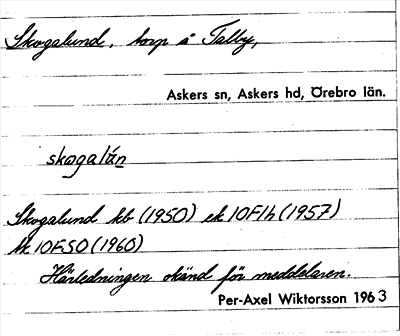 Skogalund, torp å Talby,
Askers sn, Askers hd, Örebro län.
skogalún
Skogalund kb (1950) ek 10F1h (1957)
tk 10F SO (1960)
Härledningen okänd för meddelaren.
Per-Axel Wiktorsson 1963